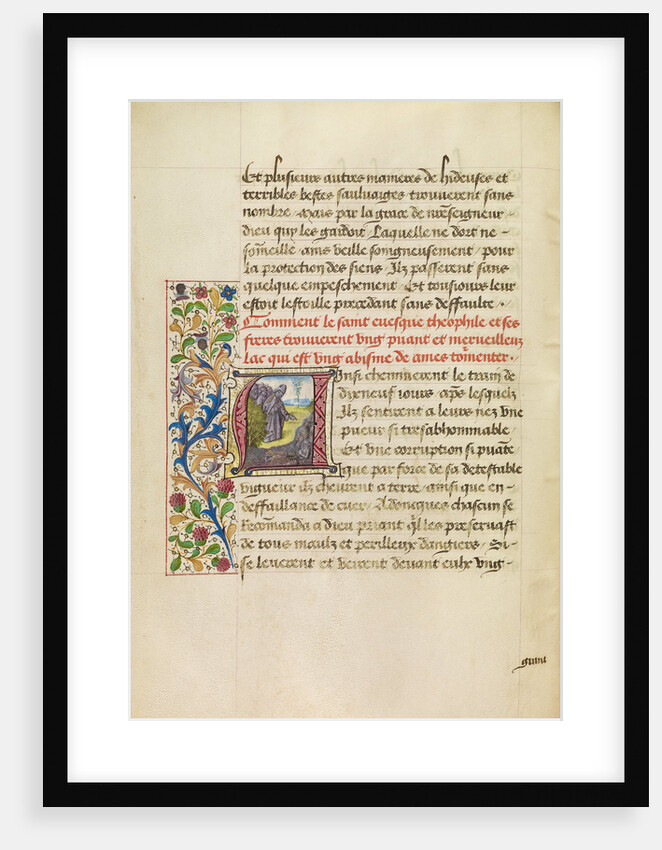 Et plusieurs autres manieres de hideuses et
terribles bestes sauluaiges trouuerent sans
nombre / Mais par la grace de nr̃eseigneur -
dieu qui les gardoit Laquelle ne dort ne -
som̃eille / ains veille soingneusement / pour
la protection des siens / Ilz passerent sans
quelque empeschement / Et tousiours leur
estoit lestoille precedant sans deffaulte .
Comment le saint euesque theophile et ses
freres trouuerent vng puant et merueilleux
lac qui est vng abisme de ames tom̃enter .
Ainsi cheminerent le train de
dixneuf iours / ap̃s lesquelz
Ilz sentirent a leurs nez vne
pueur si tresabhommable /
Et vne corruption si puãte
que par force de sa detestable
vigueur ilz cheurent a terre / ainsi que en -
deffaillance de cuer / Adoncques chascun se
Recom̃anda a dieu priant q̃l les preseruast
de tous maulz et perilleux dangiers / Si -
se leuerent et veirent deuant eulx vng -